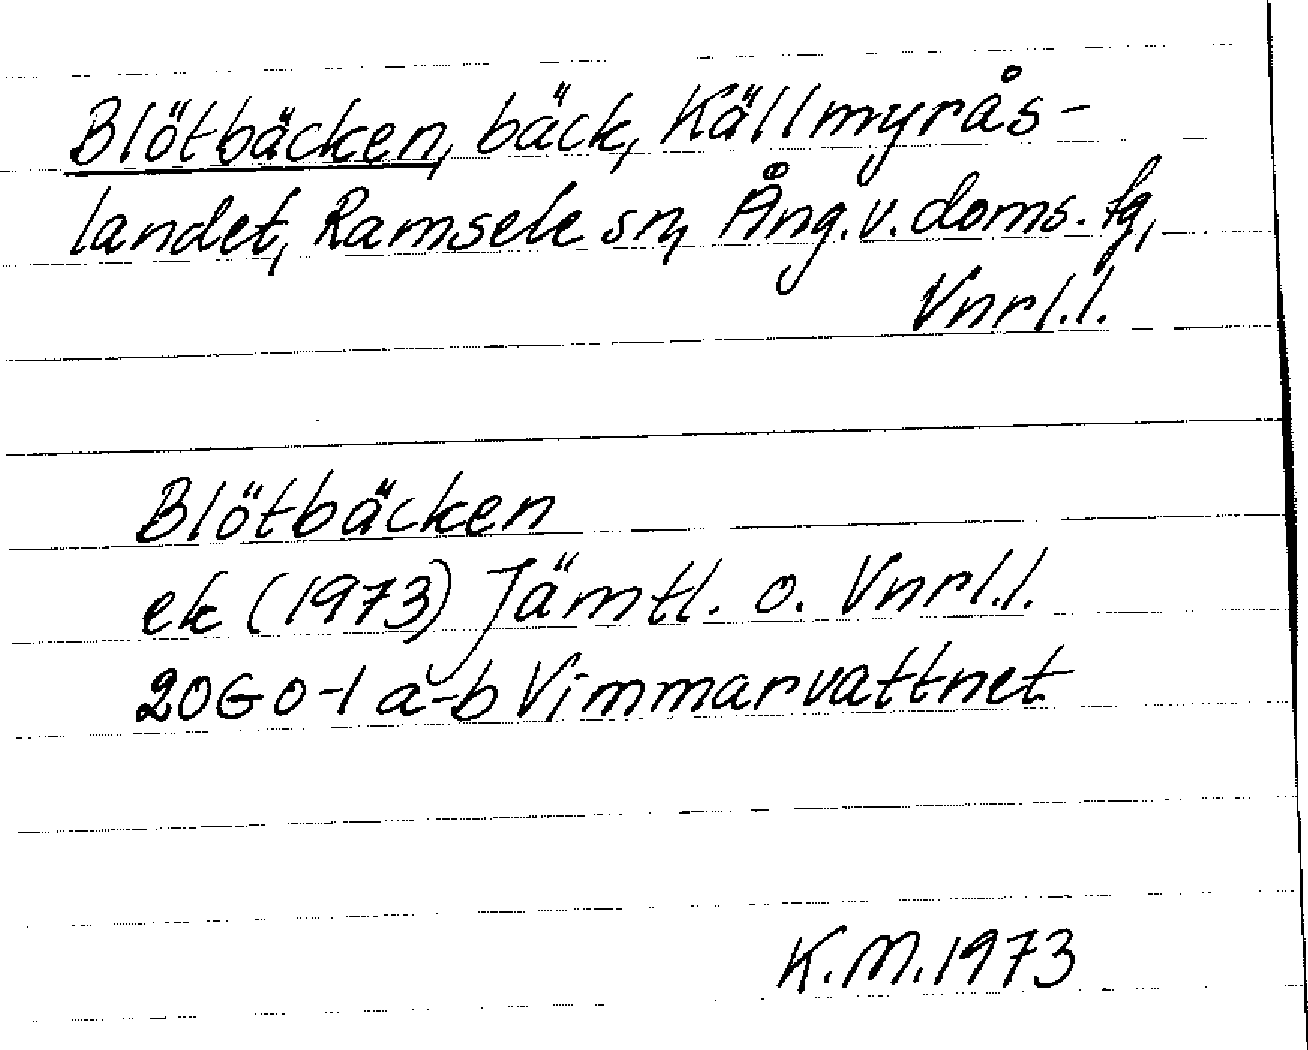 Blötbäcken, bäck, Källmyrås-
landet, Ramsele sn, Ång.v.doms. fg,
Vnrl.l.
Blötbäcken
ek (1973) Jämtl. o. Vnrl.l.
20G 0-1 a-b Vimmarvattnet
K.M.1973